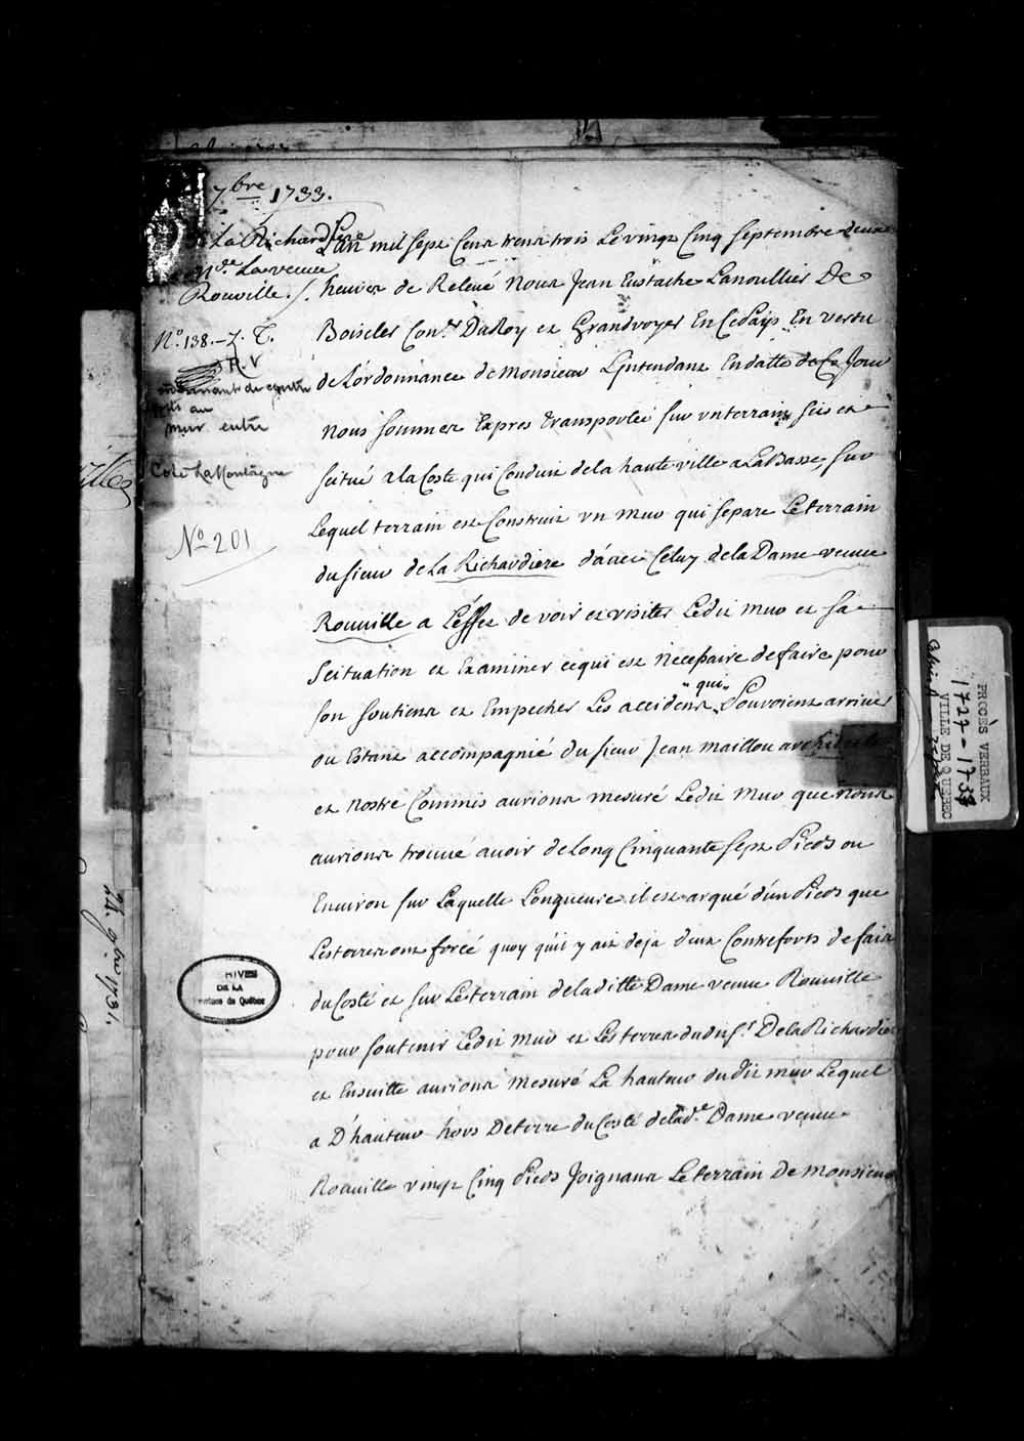 7bre 1733.
La Richardiere
Mde. La veuve
Rouville ./.
No. 138. - Z. T.
R. V
mur entre
Cote La Montagne
No. 201
Lan mil sept Cent trente trois Le vingt Cinq septembre deux
heures de Relevé Nous Jean Eustache Lanoullier De
Boiscler Coner. Du Roy et Grandvoyer En Ce Païs En vertu
de Lórdonnance de Monsieur Lintendant En datte de Ce Jour
Nous sommes Expres transportéé sur un terrain sis et
situé a la Coste qui Conduit de la haute ville a La Basse, sur
Lequel terrain est Construit un mur qui separe Le terrain
du sieur de La Richardiere d'avec Celuy de la Dame veuve
Rouville a L'effet de voir et visiter Ledit mur et sa
Scituation et Examiner ce qui est Necessaire de faire pour
son soutient et Empecher Les accidents "qui" Pouroient arriver
ou Estant accompagnié du sieur Jean Maillou architecte
et Nostre Commis aurions mesuré Ledit Mur que Nous
aurions trouvé avoir de Long Cinquante sept Pieds ou
Environ sur Laquelle Longueure il est arqué d'un Pieds que
Les terres ont forcé quoy qu'il y ait deja deux Contreforts de fait
du Costé et sur Le terrain de laditte Dame veuve Rouville
pour soutenir Ledit mur et Les terres dudit Sr. De la Richardiere
et Ensuitte aurions Mesuré La hauteur du dit mur Lequel
a D'hauteur hors De terre du Costé de lade. Dame veuve
Rouville vingt Cinq Pieds Joignant Le terrain De Monsieur
ARCHIVES
DE LA
Province de Québec
PROCÈS VERBAUX
1727-1733
VILLE DE QUÉBEC